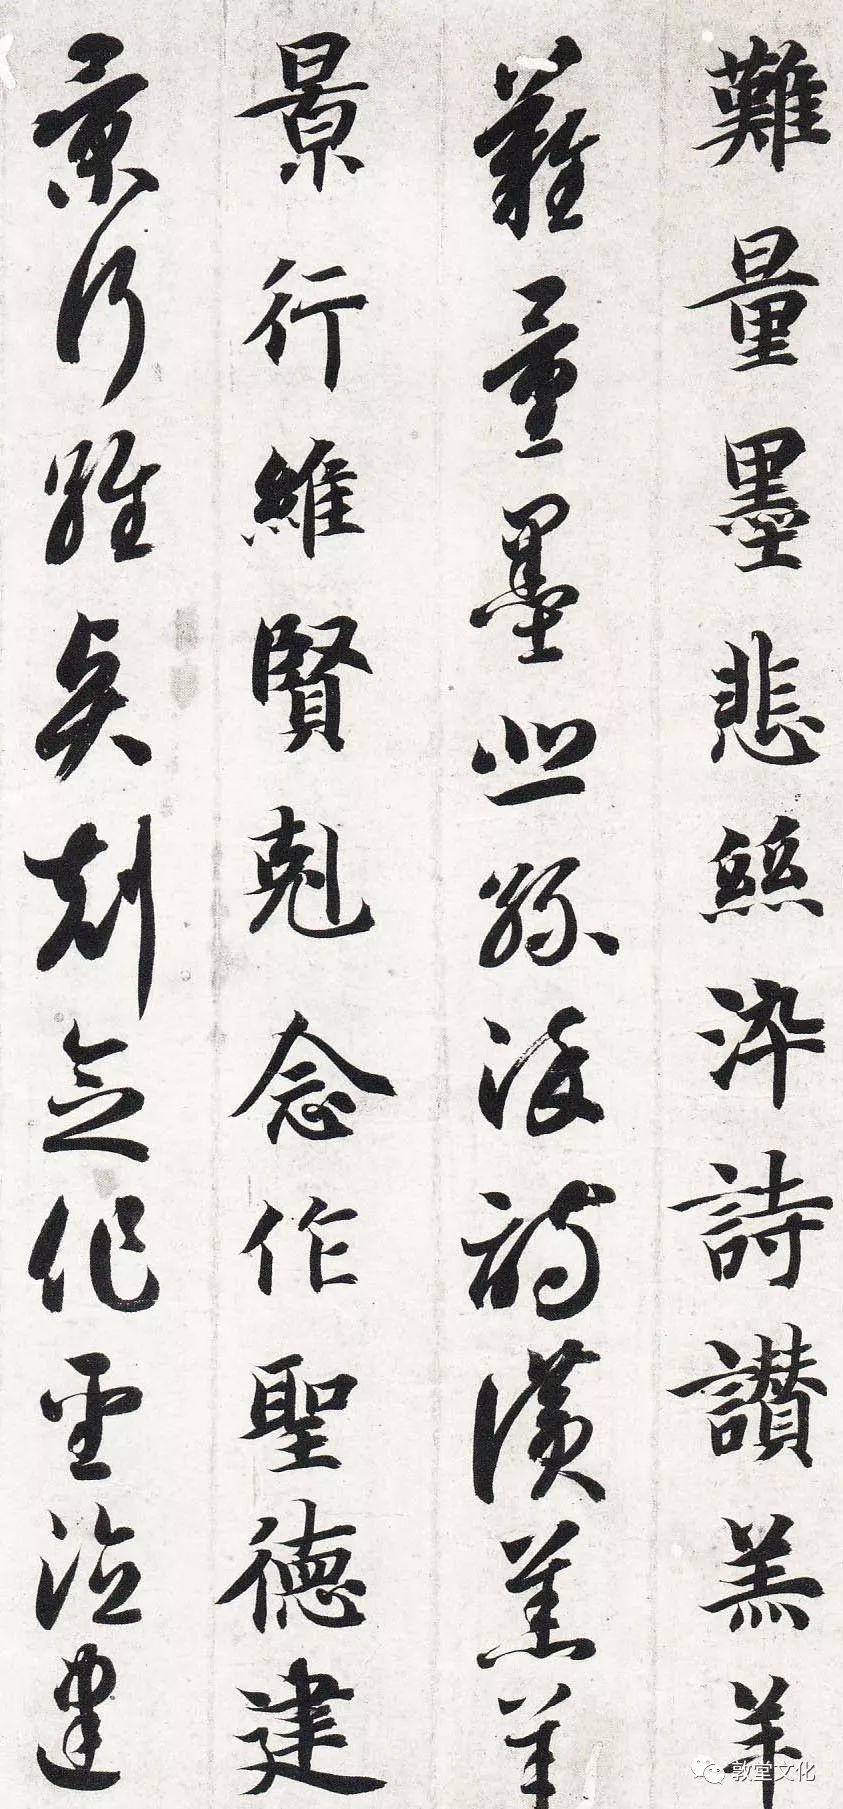 難量墨悲絲淬詩讃羔羊
難量墨悲絲淬詩讃羔羊
景行維賢剋念作聖德建
景行維賢剋念作聖德建
敦堂文化